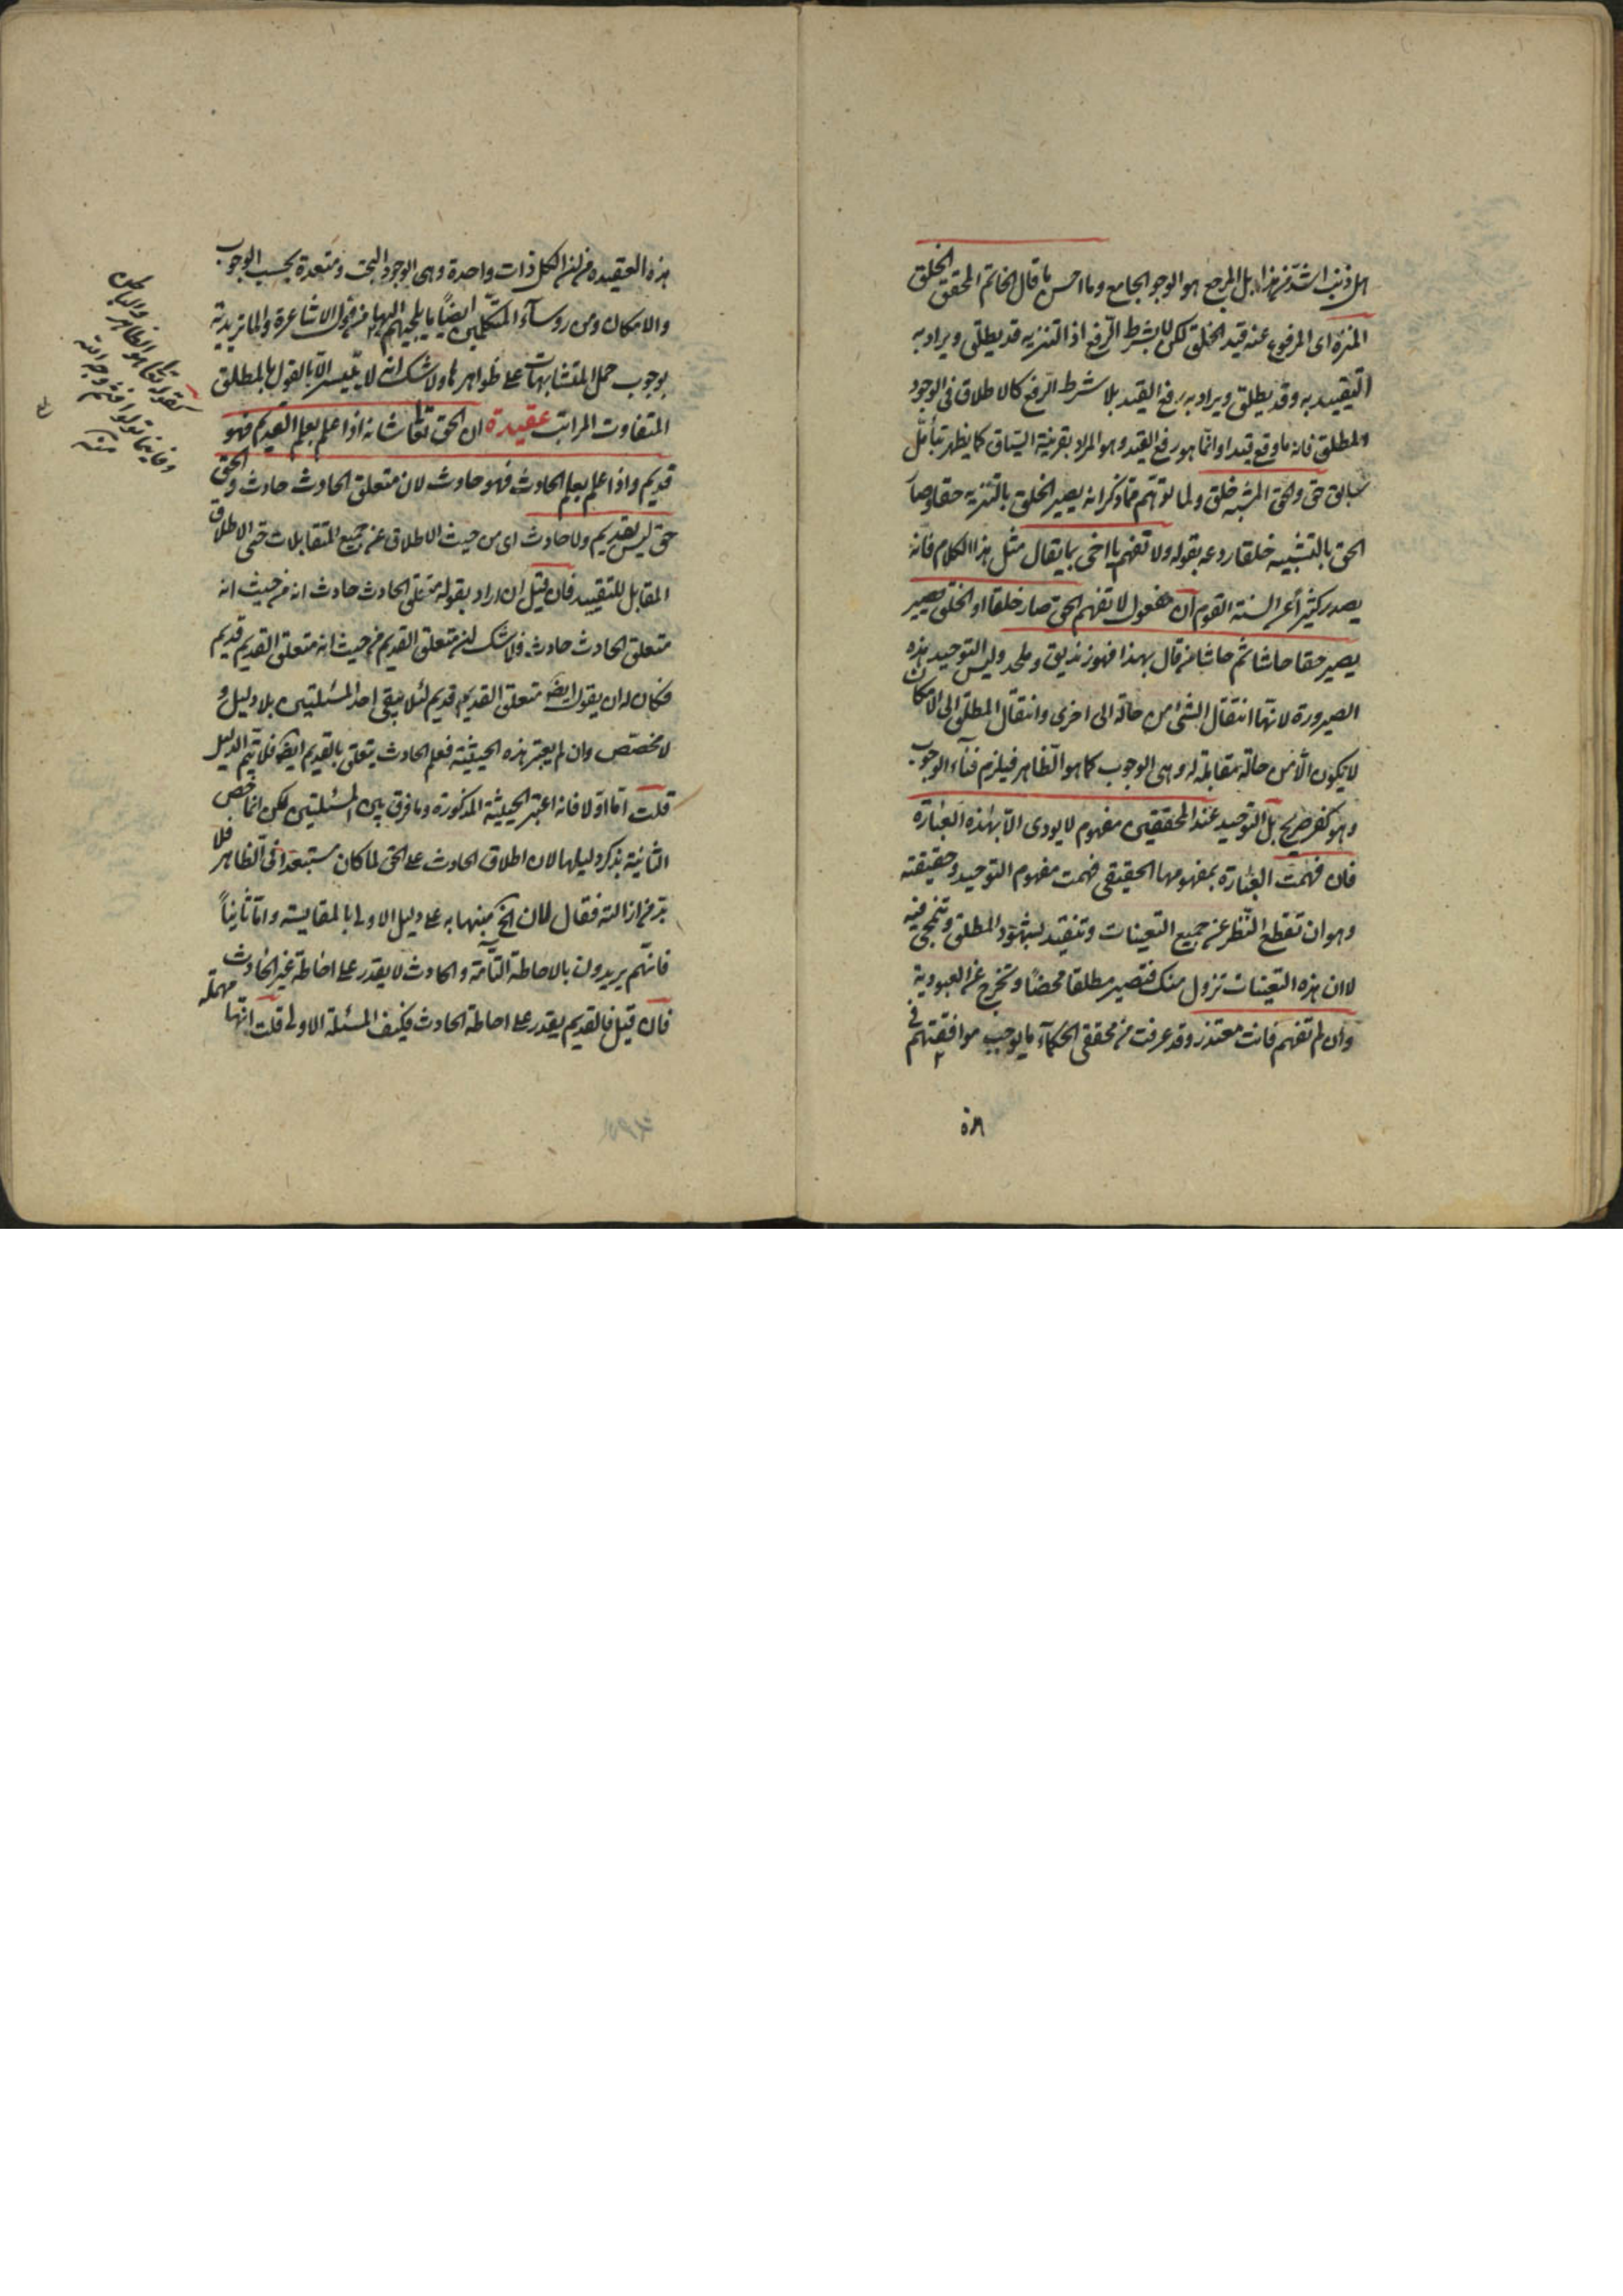 اى ذنب اشد من هذا بل المرجع هو الوجود الجامع وما احسن ما قال الخاتم المحقق الخلق
المنزه اى المرفوع عنه قيد الخلق لكن لا بشرط الرفع اذ التنزيه قد يطلق ويراد به
التقييد به وقد يطلق ويراد به رفع القيد بلا شرط الرفع كالاطلاق فى الوجود
المطلق فانه ما وقع قيدا وانما هو رفع القيد وهو المراد بقرينة السياق كما يظهر بتأمل
سابق حق والحق المشبه خلق ولما توهم مما ذكر انه يصير الخلق بالتنزيه حقا وصار
الحق بالتشبيه خلقا ردعه بقوله ولا تفهم يا اخى بما يقال مثل هذا الكلام فانه
يصدر كثيرا عن السنة القوم ان مفعول لا تفهم الحق صار خلقا او الخلق يصير
يصير حقا حاشا ثم حاشا من قال بهذا فهو زنديق وملحد وليس التوحيد هذه
الصيرورة لانها انتقال الشئ من حالة الى اخرى وانتقال المطلق الى الامكان
لا يكون الا من حالة مقابلة له وهى الوجوب كما هو الظاهر فيلزم فناء الوجوب
وهو كفر صريح بل التوحيد عند المحققين مفهوم لا يودى الا بهذه العبارة
فان فهمت العبارة بمفهومها الحقيقى فهمت مفهوم التوحيد وحقيقته
وهو ان تقطع النظر عن جميع التعينات وتتقيد بشهود المطلق وتنمحى فيه
لا ان هذه التعينات تزول منك فتصير مطلقا محضا وتخرج عن العبودية
وان لم تفهم فانت معتذر وقد عرفت من محققى الحكماء ما يوجب موافقتهم فى
هذه
هذه العقيدة من ان الكل ذات واحدة وهى الوجود البحت ومتعددة بحسب الوجوب
والامكان ومن روساء المتكلمين ايضا ما يلجيهم اليها من قول الاشاعرة والماتريدية
بوجوب حمل المتشابهات على ظواهرها ولا شك انه لا يتيسر الا بالقول بالمطلق
المتفاوت المراتب عقيدة ان الحق تعالى شانه اذا علم بعلم القديم فهو
قديم واذا علم بعلم الحادث فهو حادث لان متعلق الحادث حادث والحق
حق ليس بقديم ولا حادث اى من حيث الاطلاق عن جميع المتقابلات حتى الاطلاق
المقابل للتقييد فان قيل ان اراد بقوله متعلق الحادث حادث انه من حيث انه
متعلق الحادث حادث فلا شك ان متعلق القديم من حيث انه متعلق القديم قديم
فكان له ان يقول ايضا متعلق القديم قديم لئلا يبقى احد المسئلتين بلا دليل و
لا مخصص وان لم يعتبر هذه الحيثية فعلم الحادث يتعلق بالقديم ايضا فلا يتم الدليل
قلت اما اولا فانه اعتبر الحيثية المذكورة وما فرق بين المسئلتين لكن انما خص
الثانية بذكر دليلها لان اطلاق الحادث على الحق لما كان مستبعدا فى الظاهر فلا
بد من ازالته فقال لان الخ منبها به على دليل الاولى بالمقايسة واما ثانيا
فانهم يريدون بالاحاطة التامة والحادث لا يقدر على احاطة غير الحادث
فان قيل فالقديم يقدر على احاطة الحادث فكيف المسئلة الاولى قلت انها مهملة
كقوله تعالى هو الظاهر والباطن
وفاينما تولوا فثم وجه الله
منه